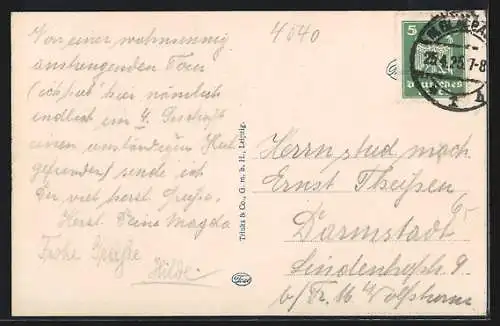 4040
Von einer wahnsinnig
anstrengenden Tour
(ich hab' hier nämlich
endlich im 4. Geschäft
einen anständigen Hut
gefunden) sende ich
Dir viel herzl. Grüße.
Herzl. Deine Magda
Frohe Grüße
Hilde.
Trinks & Co., G. m. b. H., Leipzig.
5
Deutsches
M. GLADBA
25.4.25. 7-8
1 h
Herrn stud. mach.
Ernst Theißen,
Darmstadt
Lindenhofstr. 9
b/ Fr. M. Wolfskehl